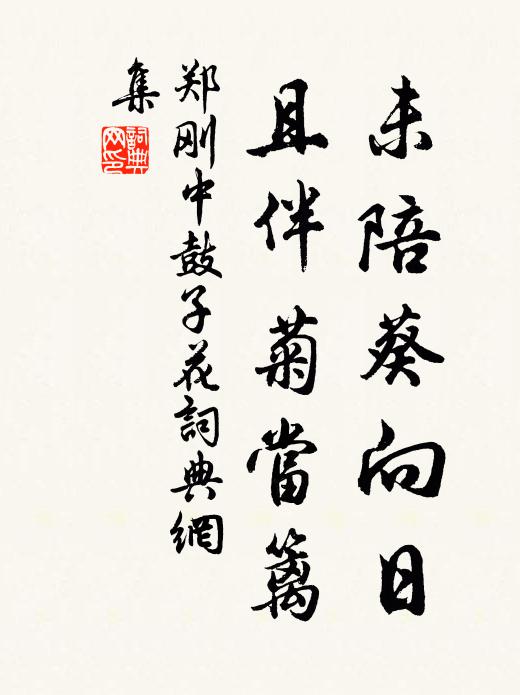 未陪葵向日
且伴菊當籬
郑刚中鼓子花詞典網
集
詞典
网印